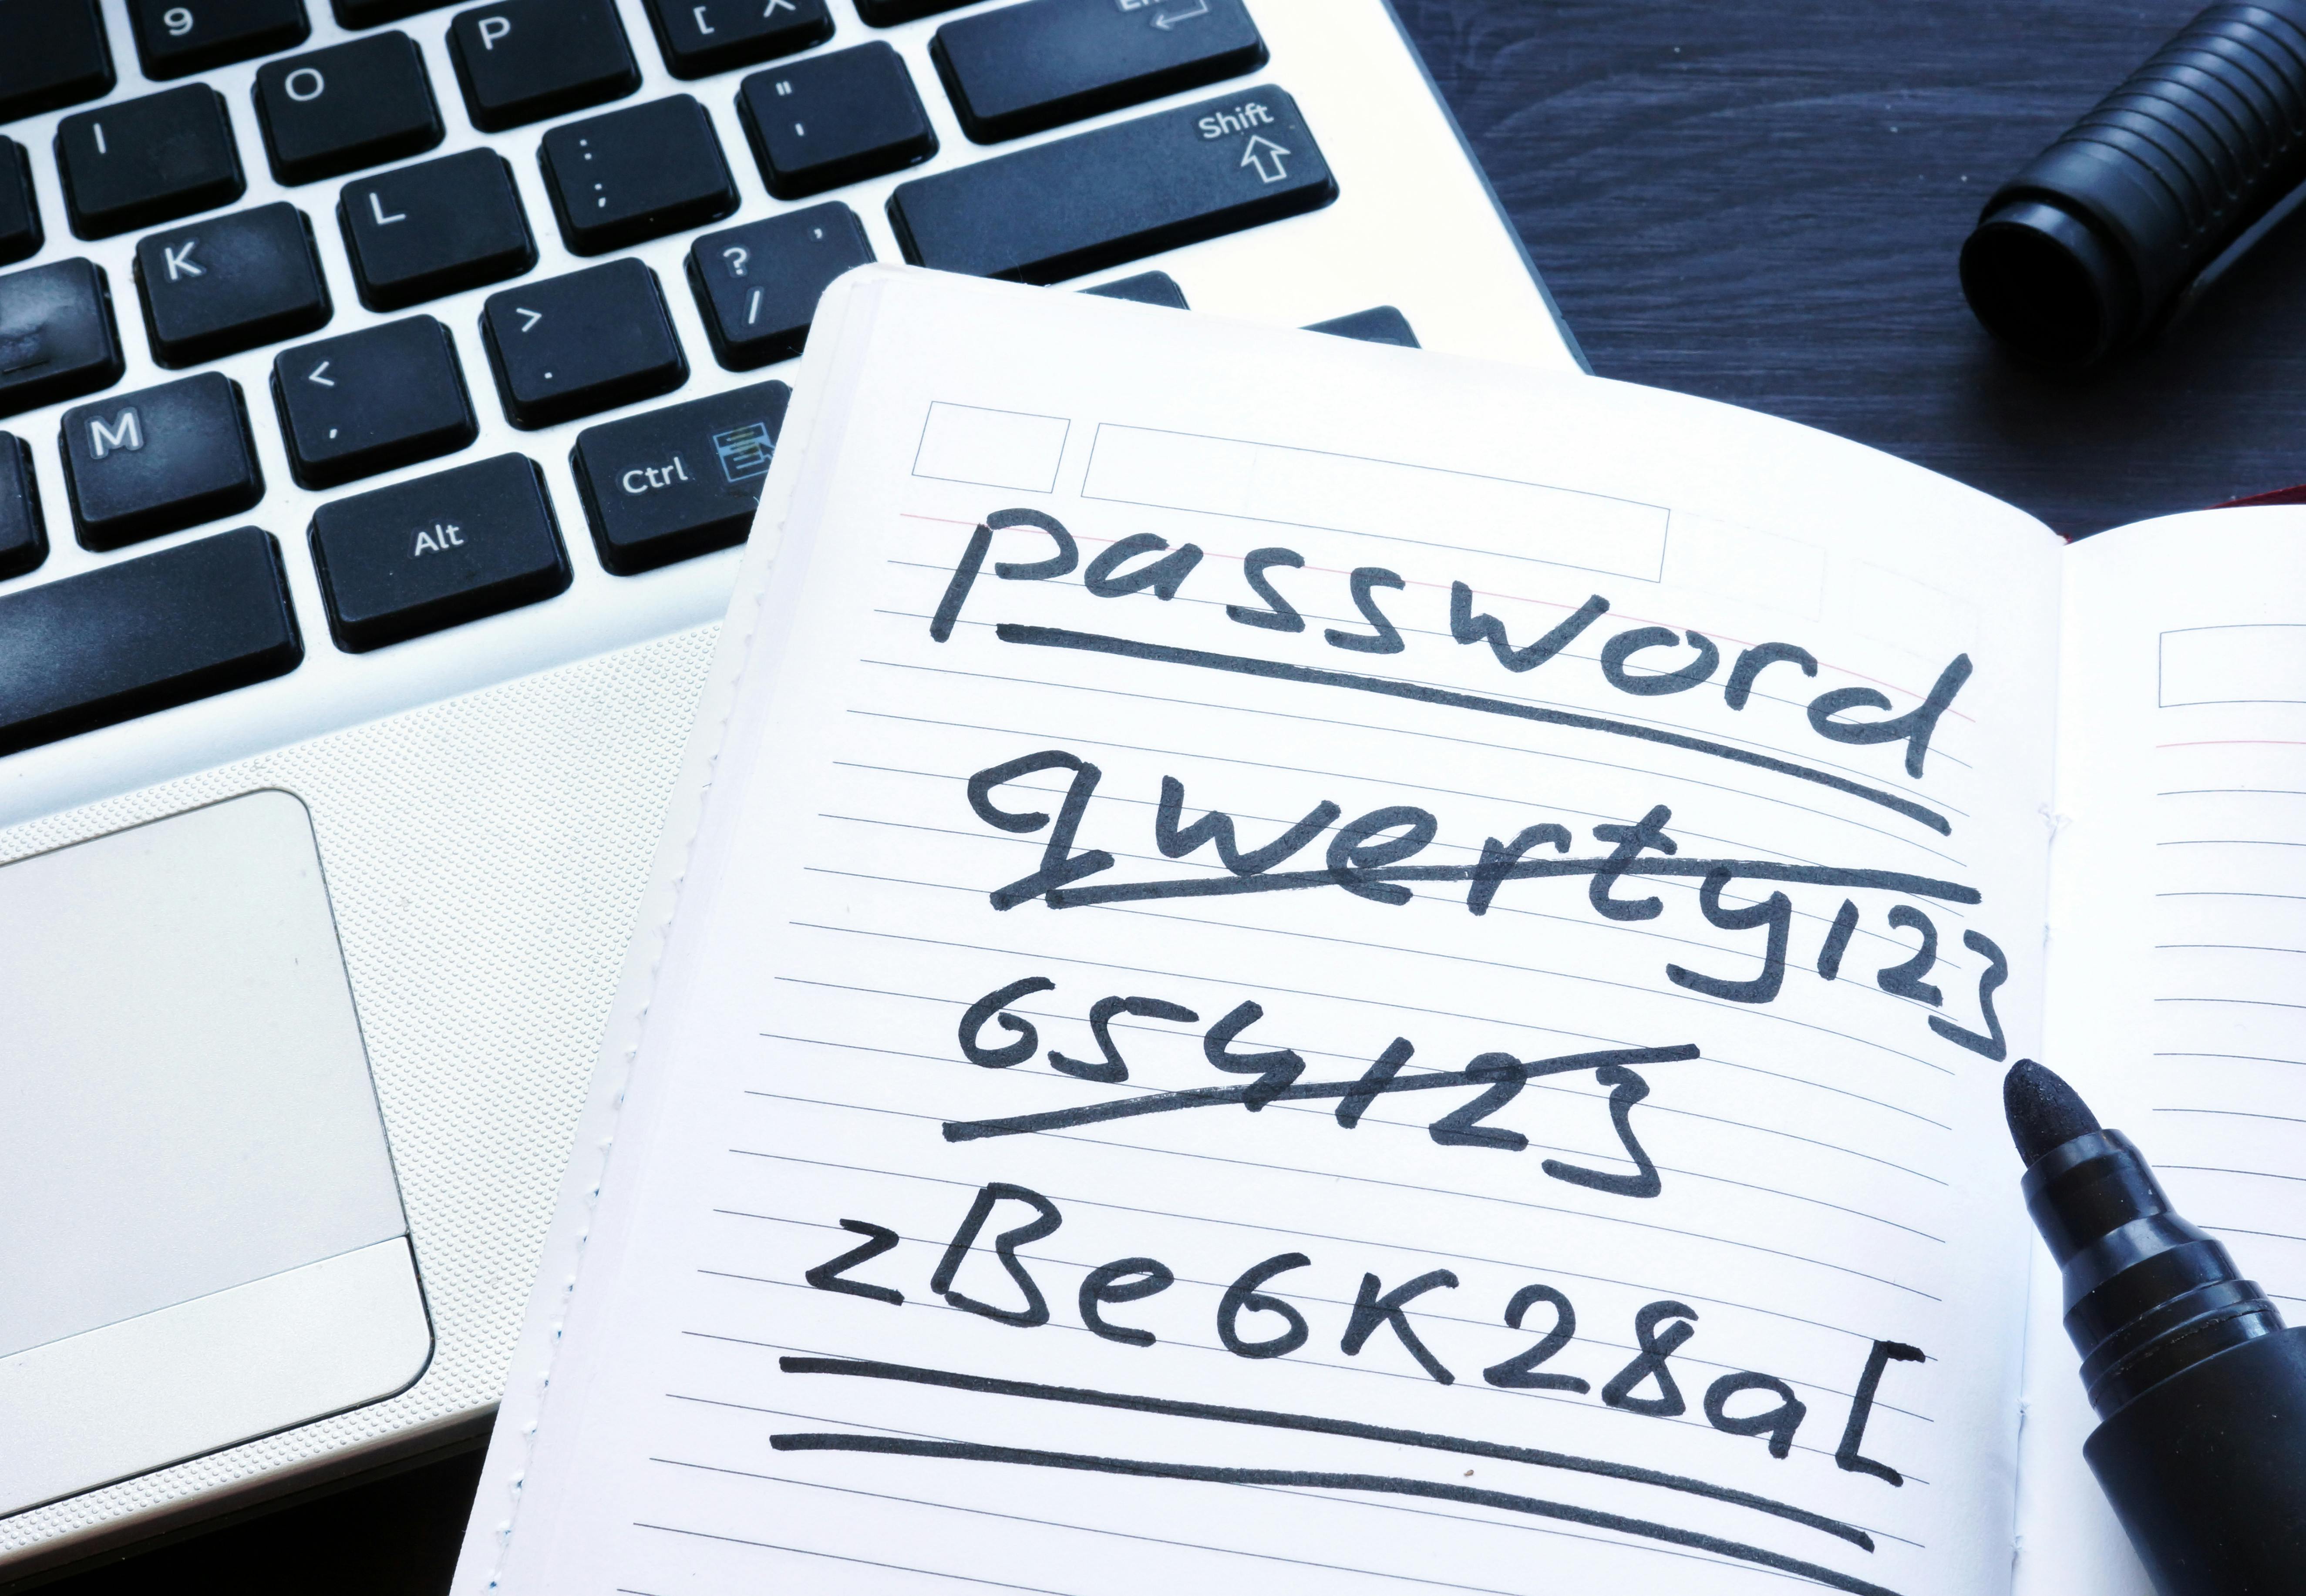 9 P [
I O : ; " ' Shift
K L > . ? /
M < , Ctrl
Alt
password
qwerty123
654123
zBe6K28a[